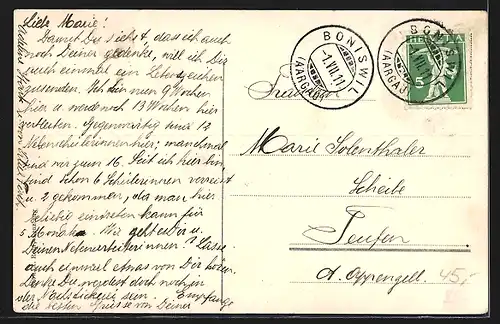 Liebe Marie!
Damit Du siehst, dass ich auch
noch Deiner gedenke, will ich Dir
auch einmal ein Lebenszeichen
zusenden. Ich bin nun 9 Wochen
hier u. werde noch 13 Wochen hier
verbleiben. Gegenwärtig sind 12
Nebenschülerinnen hier; manchmal
sind wir zu 16. Seit ich hier bin
sind schon 6 Schülerinnen verreist
u. 2 gekommen, da man hier
beliebig eintreten kann für
3 Monate. Wie geht es Dir u.
Deinen Nebenarbeiterinnen? Lasse
auch einmal etwas von Dir hören.
Denke Du werdest doch noch in
der Nachstickerei sein. Empfange
die besten Grüsse von Deiner
BONISWIL
1.VII.11
(AARGAU)
BONISWIL
VII.11
(AARGAU)
HELVETIA
5
Fräulein
Marie Solenthaler
Scheibe
Teufen
Ct. Appenzell.
45,-